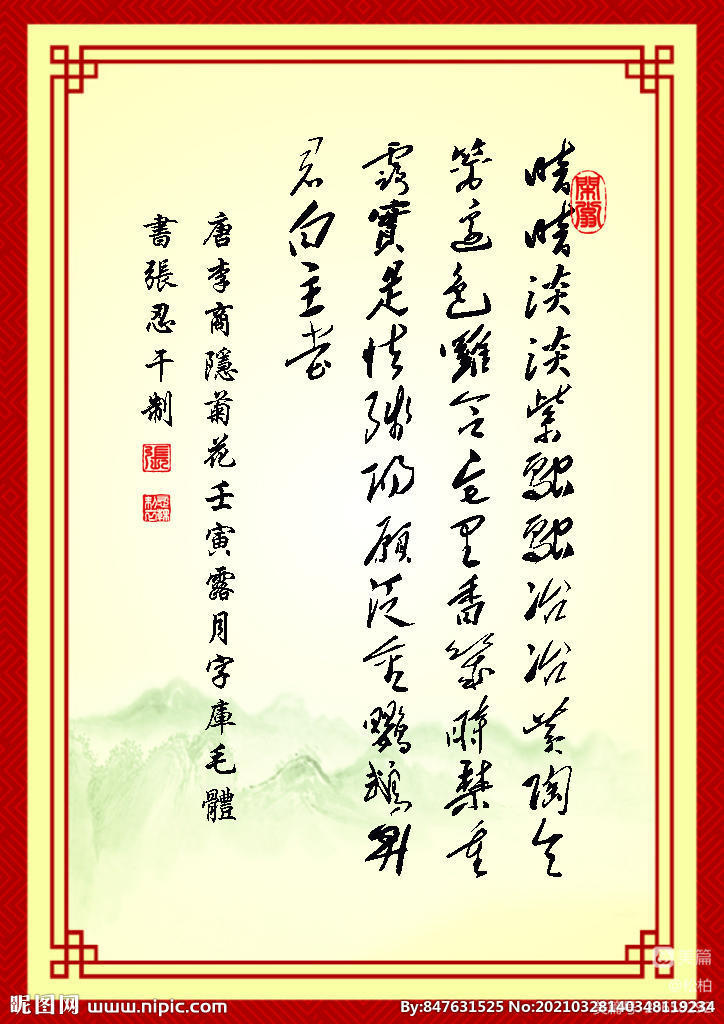 暗暗淡淡紫融融冶冶黄陶令
籬邊色羅含宅里香幾時禁重
露實是怯殘陽願泛金鸚鵡昇
君白玉堂
唐李商隱菊花壬寅露月字庫毛體
書張忍干制
張
昵图网 www.nipic.com
By:847631525 No:20210328140348119234